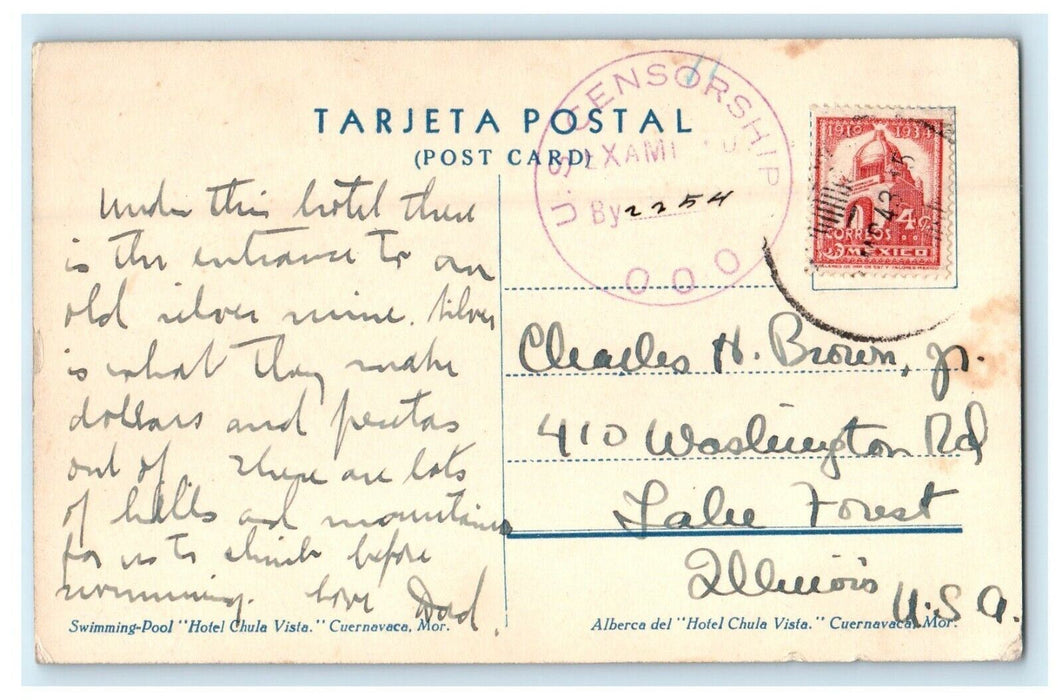 TARJETA POSTAL
(POST CARD)
U.S. CENSORSHIP
EXAMI
By 2254
000
1910 1934
4 ¢
CORREOS
MEXICO
Under this hotel there
is the entrance to an
old silver mine. Silver
is what they make
dollars and pesetas
out of. There are lots
of hills and mountains
for us to climb before
swimming. Love Dad.
Charles H. Brown, Jr.
410 Washington Rd
Lake Forest
Illinois
U.S.A.
Swimming-Pool "Hotel Chula Vista." Cuernavaca, Mor.
Alberca del "Hotel Chula Vista." Cuernavaca, Mor.